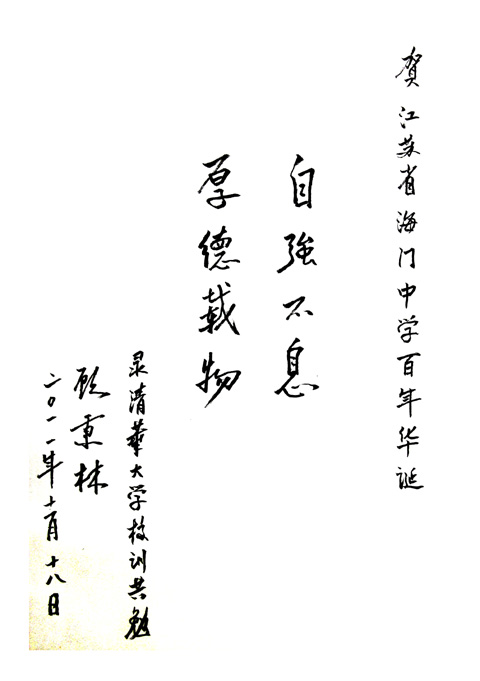 贺江苏省海门中学百年华诞
自强不息
厚德载物
录清华大学校训共勉
顾秉林
二〇一一年十一月十八日